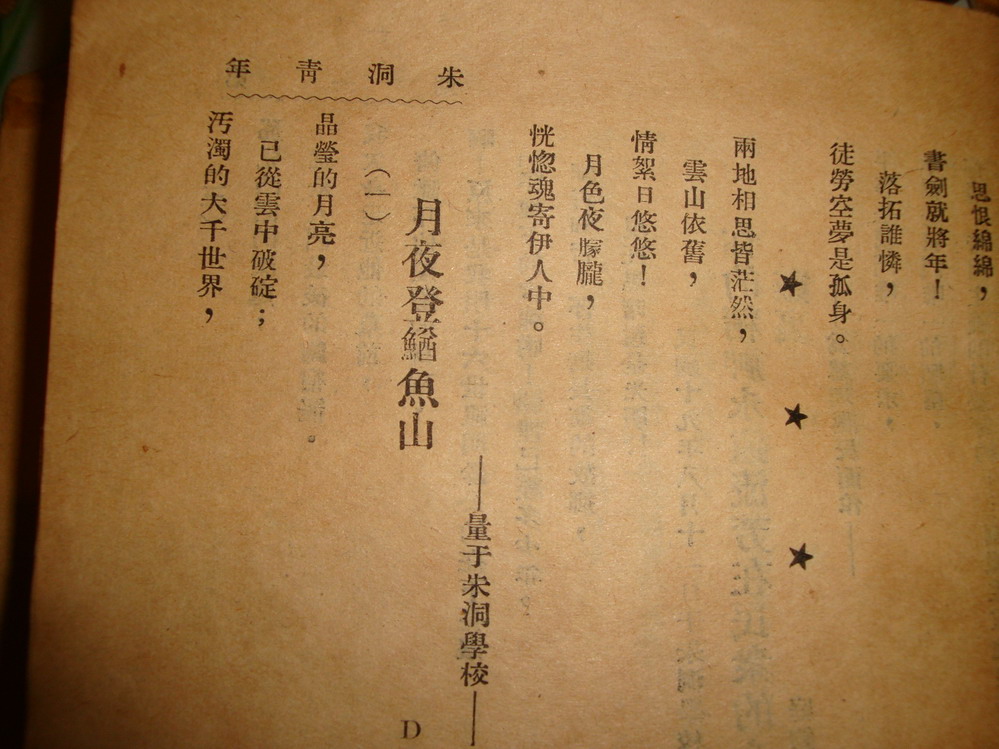 思恨綿綿，
書劍就將年！
落拓誰憐，
徒勞空夢是孤身。
★ ★ ★
兩地相思皆茫然，
雲山依舊，
情絮日悠悠！
月色夜朦朧，
恍惚魂寄伊人中。
月夜登鰌魚山
——量于朱洞學校——
D
（一）
晶瑩的月亮，
已從雲中破碇；
汚濁的大千世界，
朱洞青年